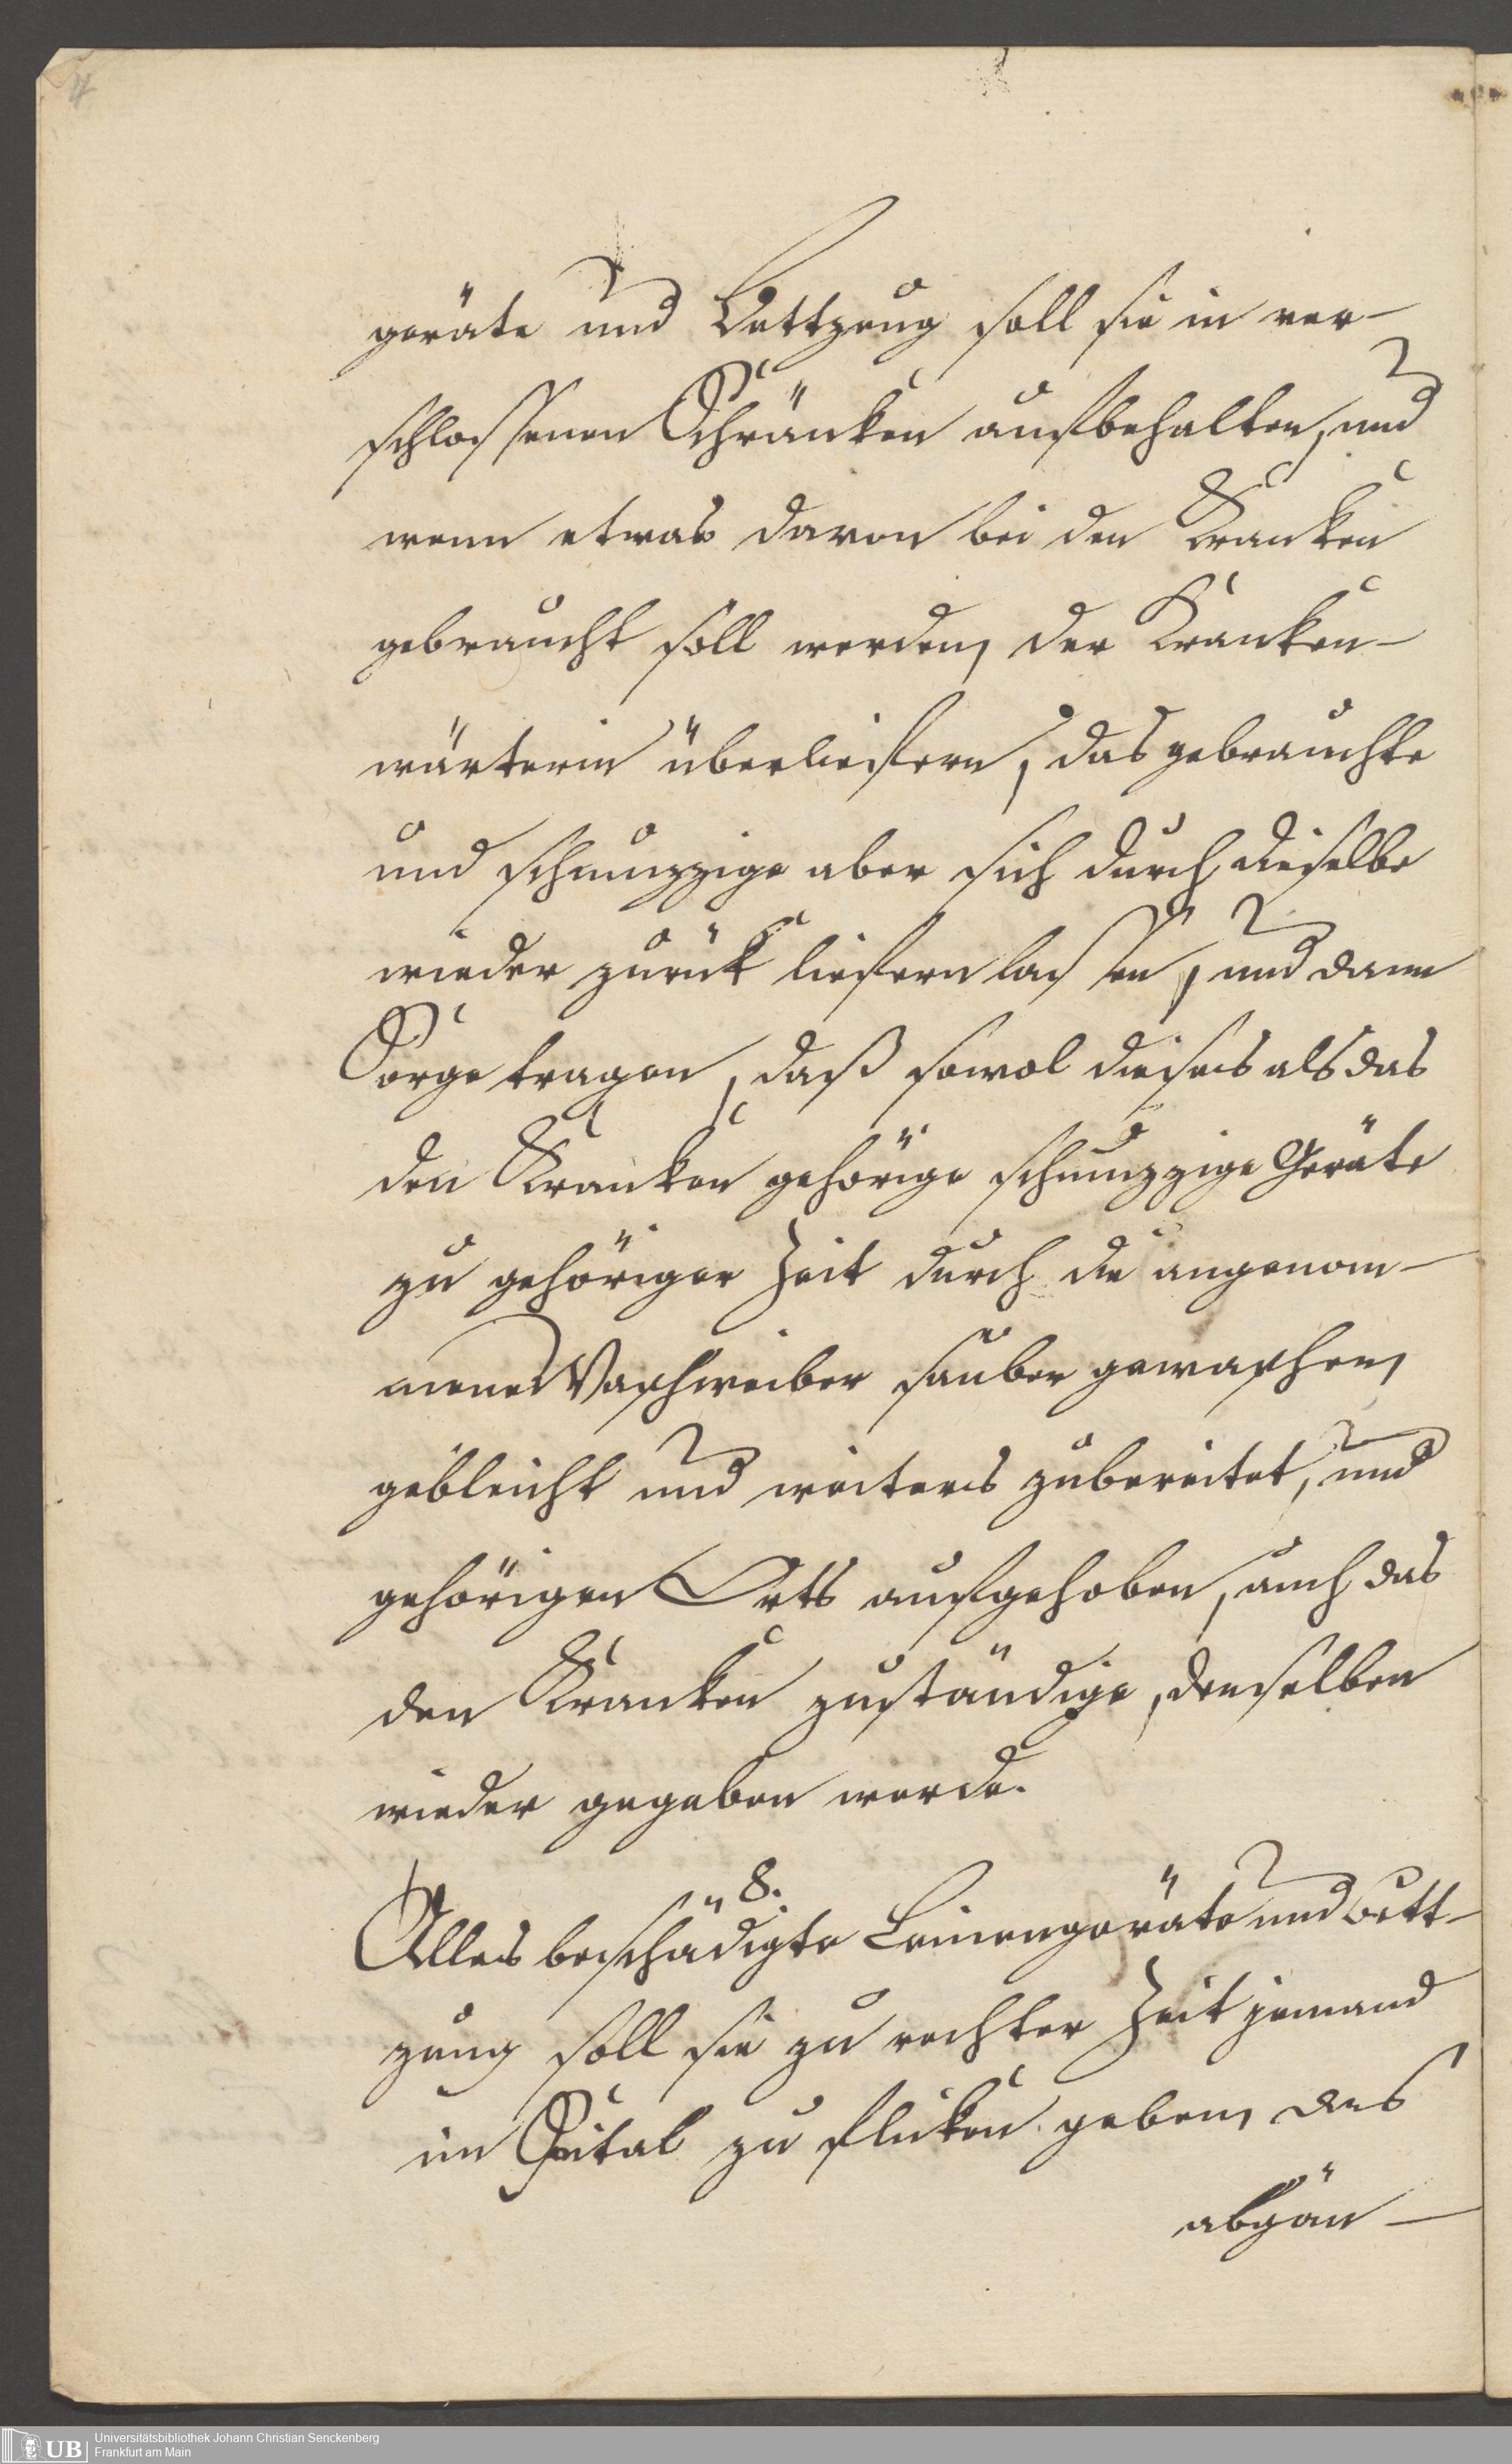 4
geräte und Bettzeug soll sie in ver-
schlossenen Schränken aufbehalten, und
wenn etwas davon bei den Kranken
gebraucht soll werden, der Kranken-
wärterin überliefern, das gebrauchte
und schmuzzige aber sich durch dieselbe
wieder zurük liefern lassen, und dann
Sorge tragen, daß sowol dieses als das
den Kranken gehörige schmuzzige Geräte
zu gehöriger Zeit durch die angenom-
mene Waschweiber sauber gewaschen,
gebleicht und weiters zubereitet, und
gehörigen Orts aufgehoben, auch das
den Kranken zuständige, denselben
wieder gegeben werde.
8.
Alles beschädigte Leinengeräte und Bett-
zeug soll sie zu rechter Zeit jemand
im Spital zu fliken geben, das
abgän-
UB
Universitätsbibliothek Johann Christian Senckenberg
Frankfurt am Main